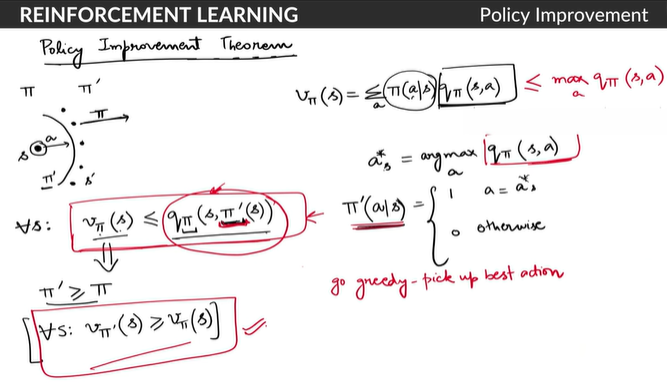 REINFORCEMENT LEARNING
Policy Improvement
Policy Improvement Theorem
π π'
π
a
s
π' s'
∀s: v_π(s) ≤ q_π(s, π'(s))
⇓
π' ≥ π
[∀s: v_π'(s) ≥ v_π(s)]
v_π(s) = Σ_a π(a|s) q_π(s,a) ≤ max_a q_π(s,a)
a*_s = argmax_a q_π(s,a)
π'(a|s) = { 1 a = a*_s
0 otherwise
go greedy - pick up best action